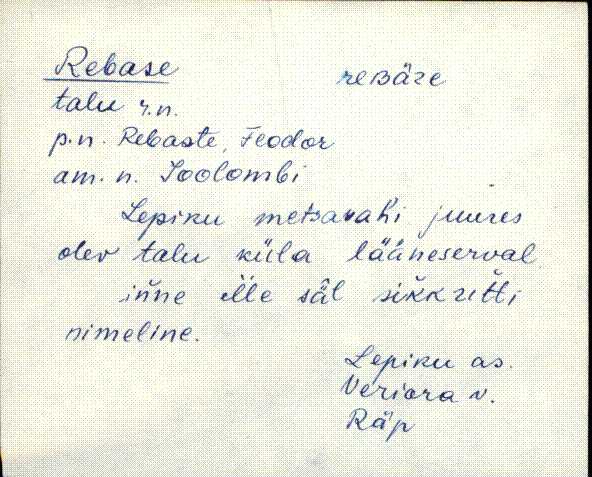 Rebase reBäze
talu r.n.
p.n. Rebaste, Feodor
am. n. Soolombi
Lepiku metsavahi juures
olev talu küla lääneserval
nimeline.
Lepiku as.
Veriora v.
Räp